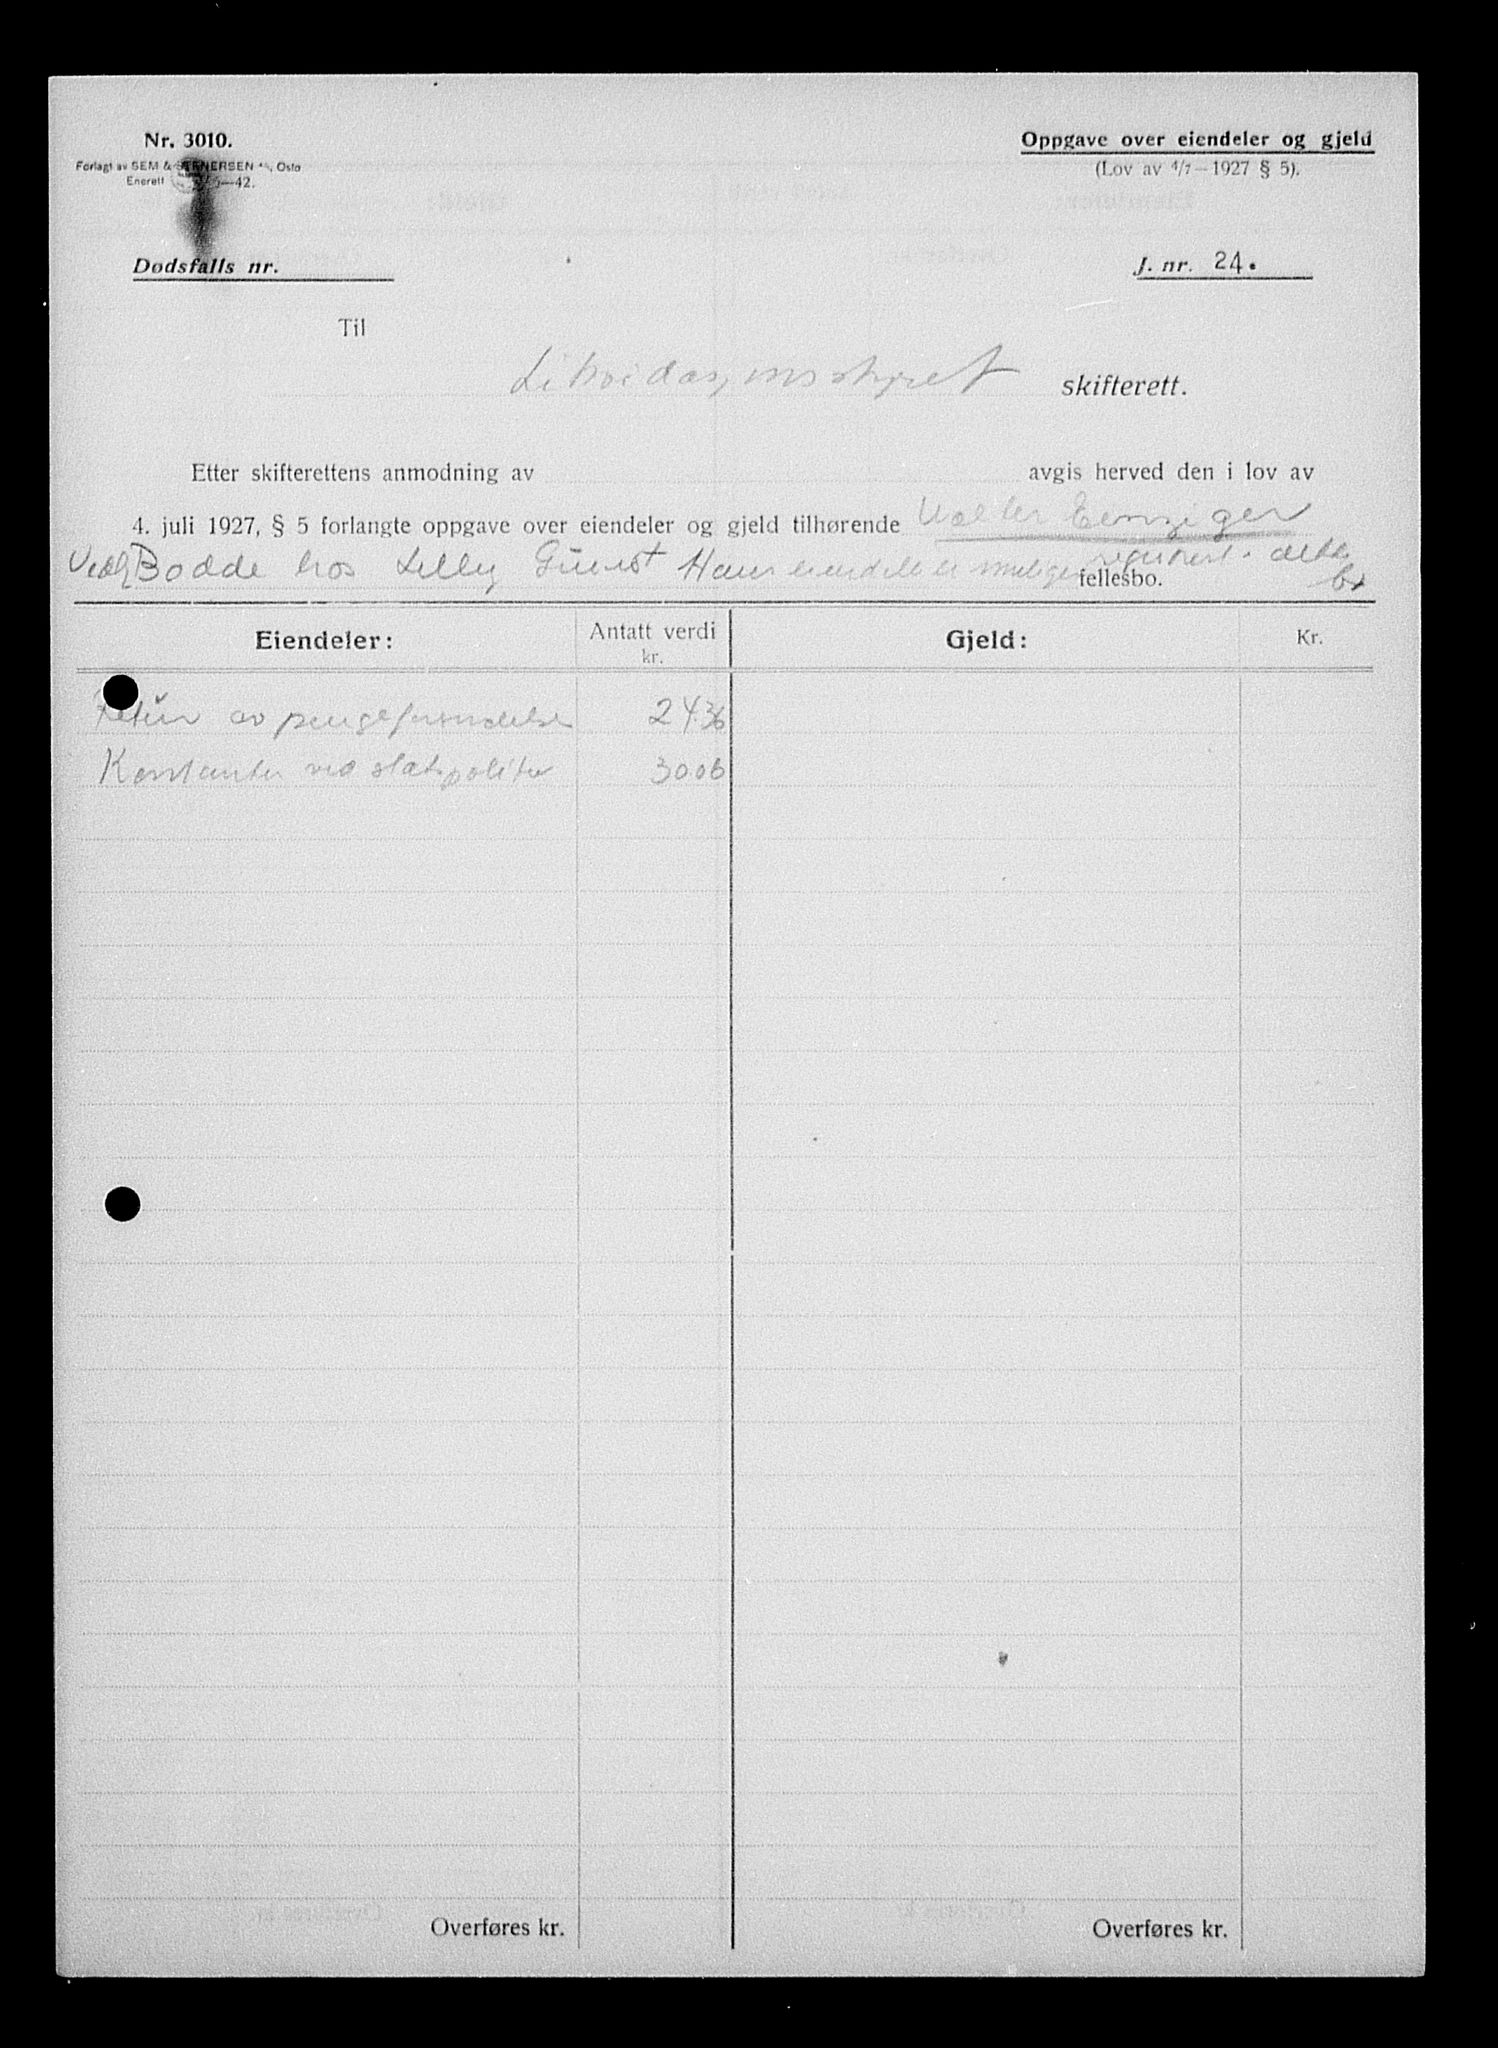 Nr. 3010.
Forlagt av SEM & STENERSEN A/S, Oslo
Enerett —42.
Oppgave over eiendeler og gjeld
(Lov av 4/7—1927 § 5).
Dødsfalls nr.
J. nr. 24.
Til
Likvidasjonsstyret skifterett.
Etter skifterettens anmodning av avgis herved den i lov av
4. juli 1927, § 5 forlangte oppgave over eiendeler og gjeld tilhørende Walter Eenziger
Bodde hos Lilly Hans eiendeler er registrert i dette
bo
fellesbo.
Eiendeler:
Antatt verdi
kr.
Gjeld:
Kr.
Retur av pengeforsendelse 24.36
Kontanter ved statspolitiet 30.06
Overføres kr.
Overføres kr.